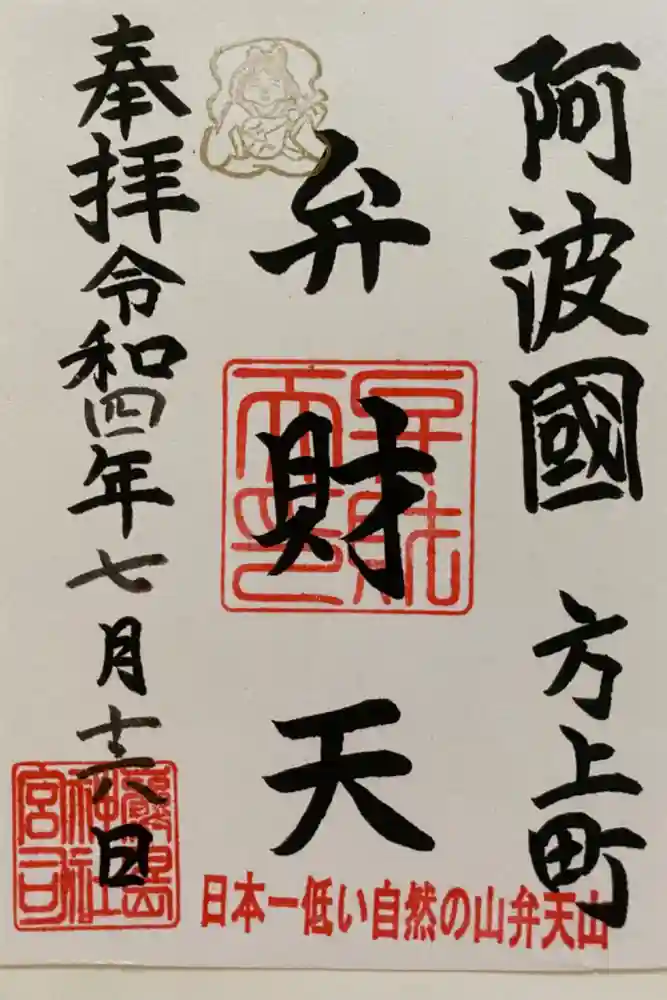 阿波國 方上町
弁財天
奉拝 令和四年七月十六日
弁財
天印
嚴島
神社
宮司
日本一低い自然の山弁天山